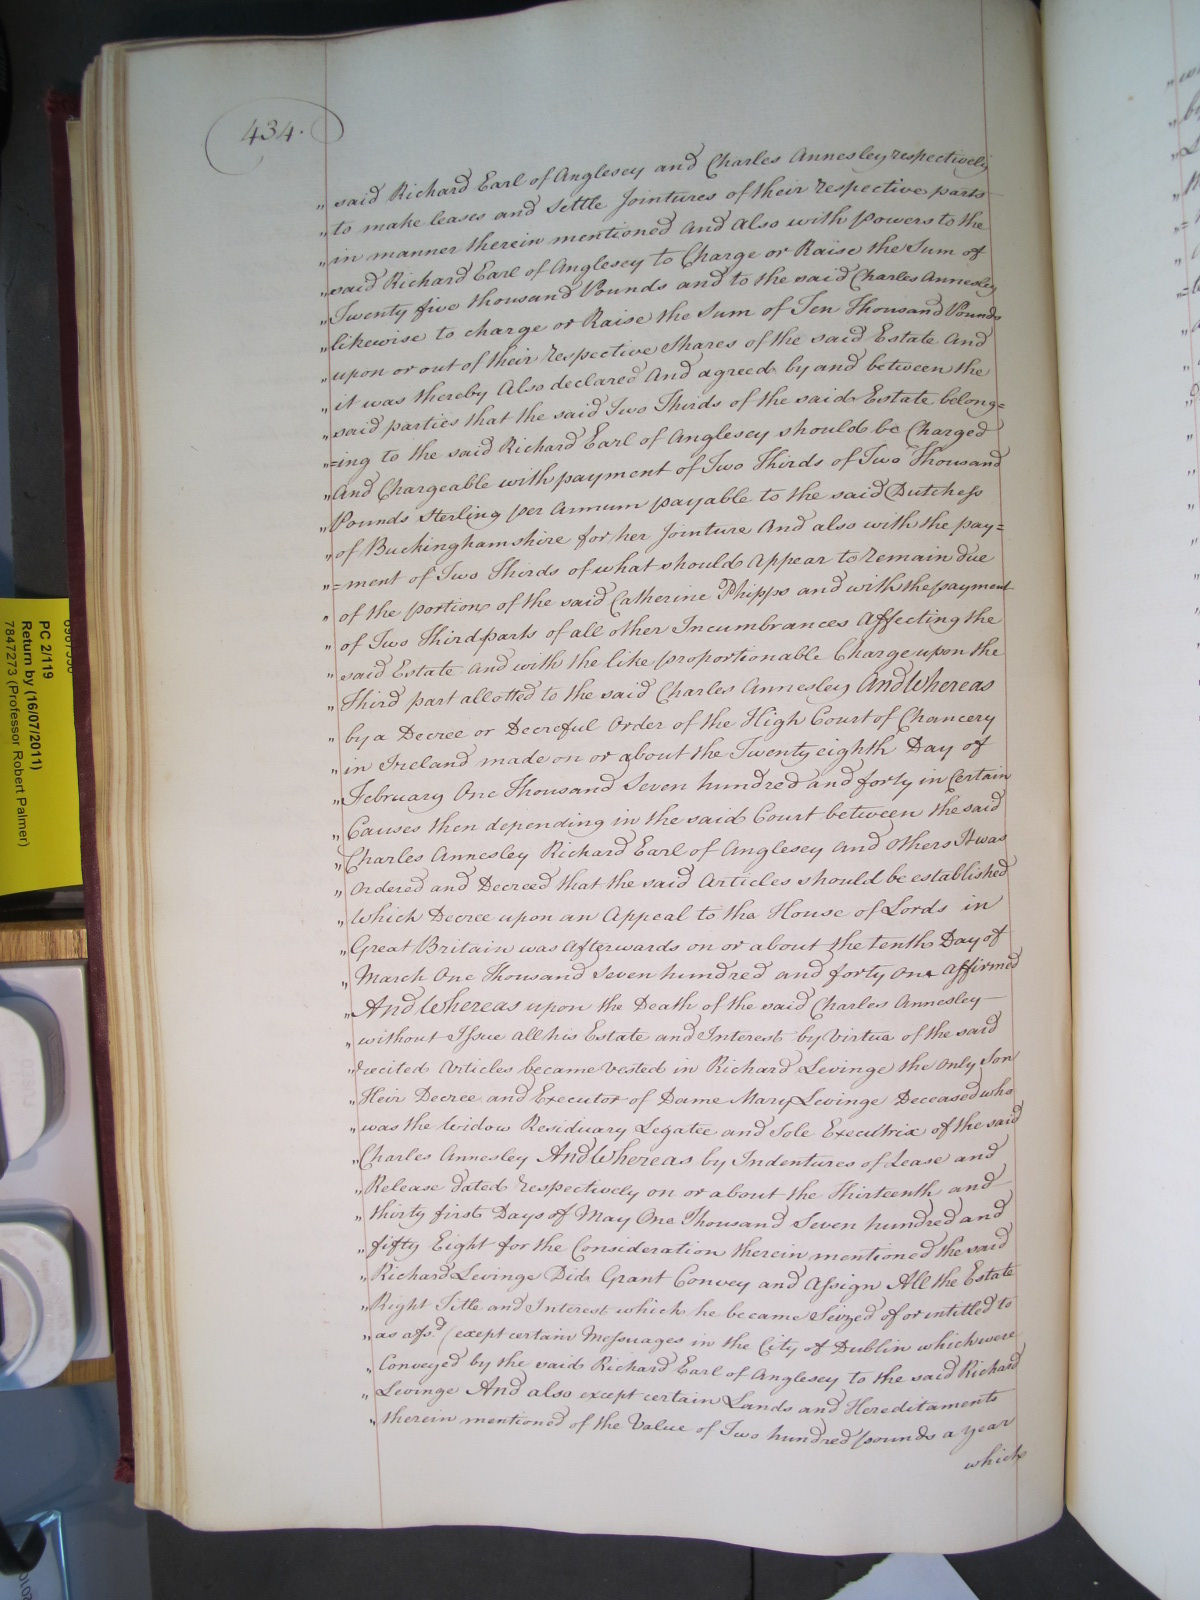 434.
„ said Richard Earl of Anglesey and Charles Annesley respectively
„ to make leases and Settle Jointures of their respective parts
„ in manner therein mentioned And Also with powers to the
„ said Richard Earl of Anglesey to Charge or Raise the Sum of
„ Twenty five thousand Pounds and to the said Charles Annesley
„ likewise to charge or Raise the Sum of Ten Thousand Pounds
„ upon or out of their respective Shares of the said Estate And
„ it was thereby Also declared And agreed by and between the
„ said parties that the said Two Thirds of the said Estate belong=
„ =ing to the said Richard Earl of Anglesey should be Charged
„ And Chargeable with payment of Two Thirds of Two Thousand
„ Pounds Sterling per Annum payable to the said Dutchess
„ of Buckinghamshire for her Jointure And also with the pay=
„ =ment of Two Thirds of what should Appear to remain due
„ of the portion of the said Catherine Phipps and with the payment
„ of Two Third parts of all other Incumbrances Affecting the
„ said Estate And with the like proportionable Charge upon the
„ Third part allotted to the said Charles Annesley And Whereas
„ by a Decree or Decretful Order of the High Court of Chancery
„ in Ireland made on or about the Twenty eighth Day of
„ February One Thousand Seven hundred and forty in Certain
„ Causes then depending in the said Court between the said
„ Charles Annesley Richard Earl of Anglesey and Others It was
„ Ordered and Decreed that the said Articles should be established
„ Which Decree upon an Appeal to the House of Lords in
„ Great Britain was Afterwards on or about the tenth Day of
„ March One Thousand Seven hundred and forty One affirmed
„ And Whereas upon the Death of the said Charles Annesley
„ without Issue all his Estate and Interest by Virtue of the said
„ recited Articles became vested in Richard Levinge the only Son
„ Heir Decree and Executor of Dame Mary Levinge Deceased who
„ was the Widow Residuary Legatee and Sole Executrix of the said
„ Charles Annesley And Whereas by Indentures of Lease and
„ Release dated respectively on or about the Thirteenth and
„ thirty first Days of May One Thousand Seven hundred and
„ fifty Eight for the Consideration therein mentioned the said
„ Richard Levinge Did Grant Convey and Assign All the Estate
„ Right Title and Interest which he became Seized of or intitled to
„ as afsd (except certain Messuages in the City of Dublin which were
„ Conveyed by the said Richard Earl of Anglesey to the said Richard
„ Levinge And also except certain Lands and Hereditaments
„ therein mentioned of the Value of Two hundred pounds a year
which
PC 2/119
Return by (16/07/2011)
7847273 (Professor Robert Palmer)